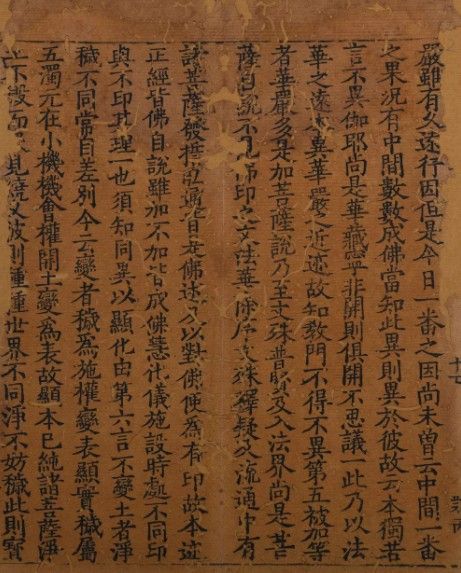 嚴雖有久遠行因但是今日一番之因尚未曾云中間一番
之果況有中間數數成佛當知此異則異於彼故云本獨苦
言不異伽耶尚是華藏寧非開則俱開不思議一此乃以法
華之遠本異華嚴之近迹故知教門不得不異第五被加等
者華嚴多是加菩薩說乃至文殊普賢及入法界尚是菩
薩自說不見佛印之文法華除序文殊釋疑及流通中有
諸菩薩被弘通皆在佛述及以對佛便為有印故本迹
正經皆佛自說雖加不加皆成佛慧代儀施設時處不同印
與不印其理一也須知同異以顯化由第六言不變土者淨
穢不同當自差別今云變者穢為施權變表顯實穢屬
五濁元在小機機會權開土變為表故顯本已純諸菩薩淨
下而見燒文彼則種種世界不同淨不妨穢此則實
十七